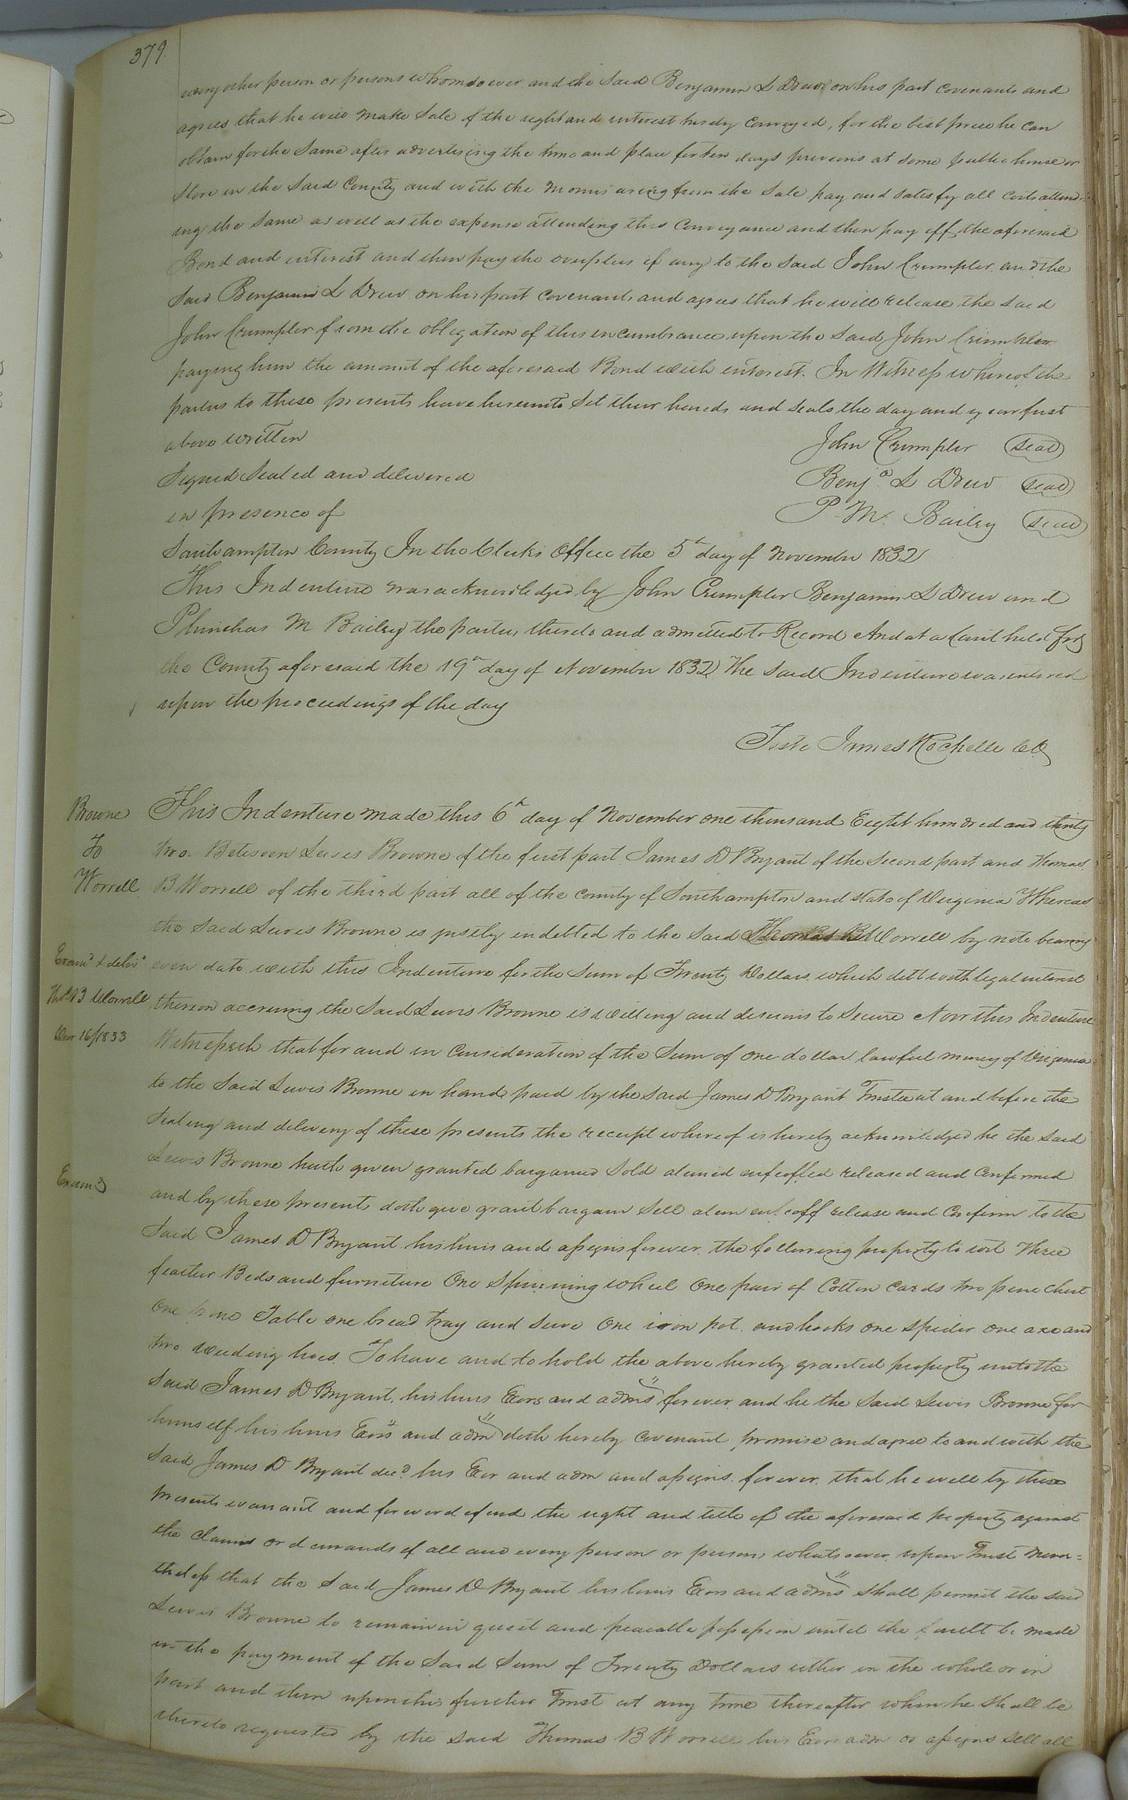 379
every other person or persons whomsoever and the said Benjamin L Drew on his part covenants and
agrees that he will make Sale of the right and interest hereby conveyed, for the best price he can
obtain for the Same after advertising the time and place for ten days previous at some public house or
Store in the said County and with the monies arising from the Sale pay and satisfy all costs attend=
ing the same as well as the expense attending this Conveyance and then pay off the aforesaid
Bond and interest and then pay the overplus if any to the said John Crumpler and the
Said Benjamin L Drew on his part covenants and agrees that he will release the said
John Crumpler from the obligation of this incumbrance upon the said John Crumpler
paying him the amount of the aforesaid Bond with interest. In Witness whereof the
parties to these presents have hereunto Set their hands and seals the day and year first
above written
John Crumpler (seal)
Signed Sealed and delivered
Benja L Drew (seal)
in presence of
P. M. Bailey (seal)
Southampton County In the Clerks Office the 5th day of November 1832
This Indenture was acknowledged by John Crumpler Benjamin L Drew and
Phinehas M Bailey the parties thereto and admitted to Record And at a Court held for
the County aforesaid the 19th day of November 1832 The said Indenture was entered
upon the proceedings of the day
Teste James Rochelle CC
Browne
To
Worrell
Examd & delivd
Thos B Worrell
16/1833
Examd
This Indenture made this 6th day of November one thousand Eight hundred and thirty
two. Between Lewis Browne of the first part James D Bryant of the Second part and Thomas
B Worrell of the third part all of the county of Southampton and state of Virginia Whereas
the said Lewis Browne is justly indebted to the said Thomas B Worrell by note bearing
even date with this Indenture for the Sum of Twenty Dollars which debt with legal interest
thereon accruing the Said Lewis Browne is willing and desirous to Secure Now this Indenture
Witnesseth that for and in Consideration of the Sum of one dollar lawful money of Virginia
to the Said Lewis Browne in hand paid by the said James D Bryant Trustee at and before the
Sealing and delivery of these presents the receipt whereof is hereby acknowledged he the said
Lewis Browne hath given granted bargained Sold aliened enfeoffed released and Confirmed
and by these presents doth give grant bargain Sell alien enfeoff release and Confirm to the
Said James D Bryant his heirs and assigns forever the following property to wit Three
feather Beds and furniture One Spinning wheel One pair of Cotton cards two pine chest
One pine Table one bread tray and Seive One iron pot and hooks one spider one axe and
two weeding hoes To have and to hold the above hereby granted property unto the
Said James D Bryant, his heirs Exors and adms forever and he the Said Lewis Browne for
himself his heirs Exors and adm doth hereby Covenant promise and agree to and with the
Said James D Bryant decd his Exr and adm and assigns forever that he will by these
presents warrant and forever defend the right and title of the aforesaid property against
the claims or demands of all and every person or persons whatsoever upon Trust never=
theless that the Said James D Bryant his heirs Exors and adms Shall permit the said
Lewis Browne to remain in quiet and peaceable possession until the fault be made
in the payment of the Said Sum of Twenty Dollars either in the whole or in
part and then upon this further Trust at any time thereafter when he Shall be
thereto requested by the said Thomas B Worrell his Exors adm or assigns sell all